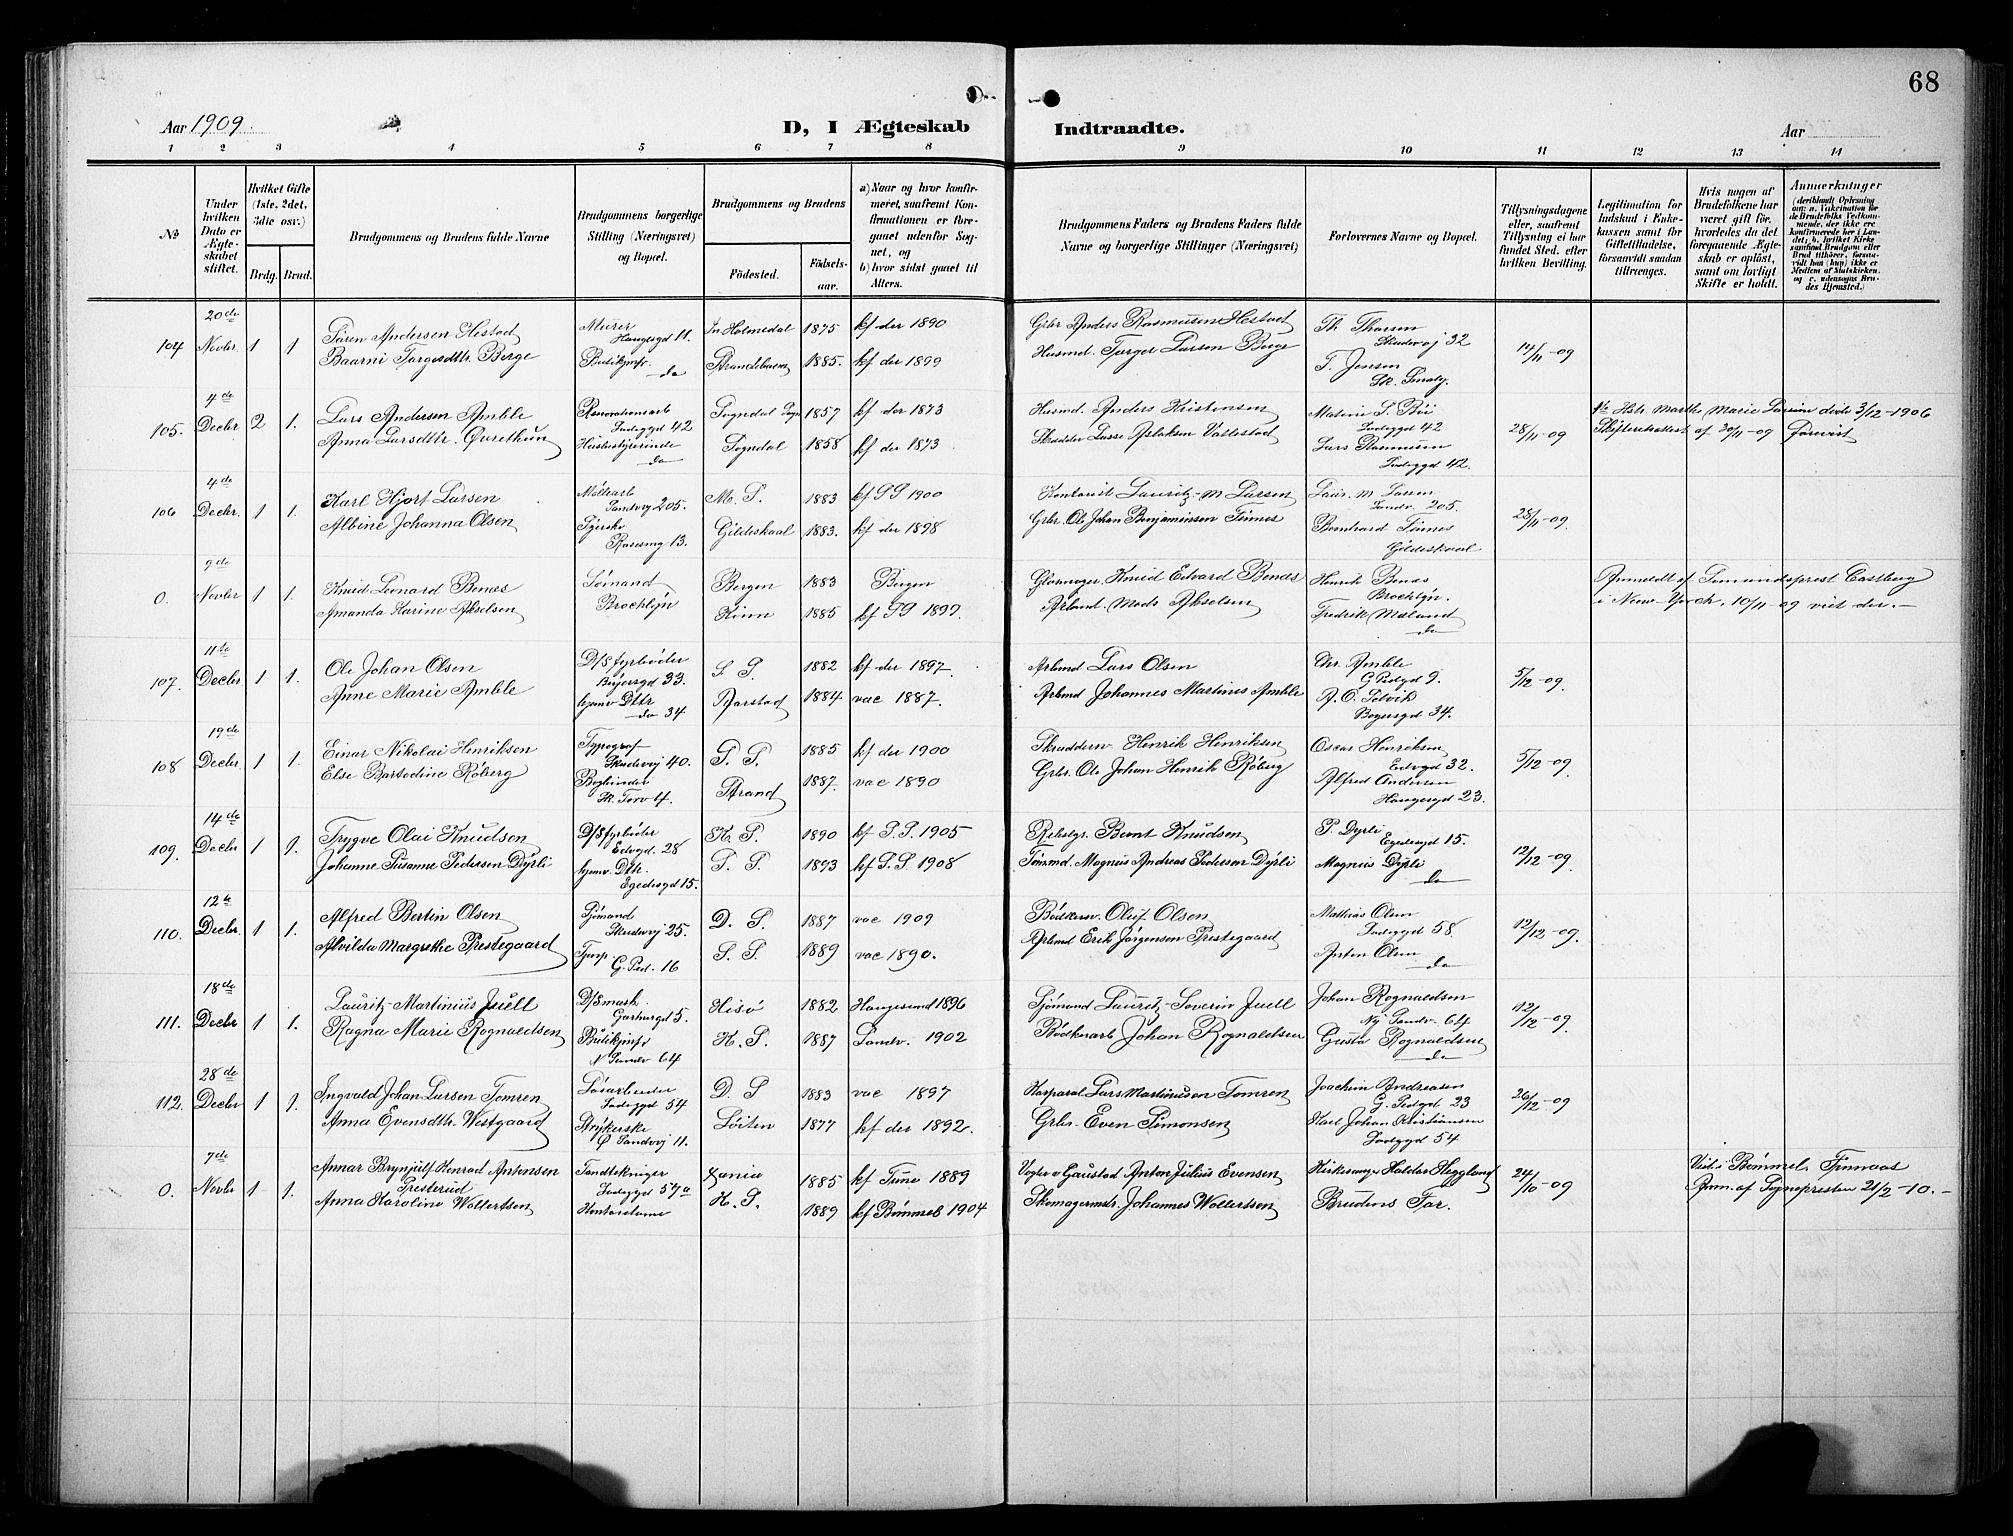 68
Aar 1909.
D, I Ægteskab
Indtraadte.
Aar
1 2 3 4 5 6 7 8 9 10 11 12 13 14
No
Under hvilken Dato er Ægteskabet stiftet.
Hvilket Gifte (1ste, 2det, 3die osv.)
Brdg. Brud.
Brudgommens og Brudens fulde Navne
Brudgommens borgerlige Stilling (Næringsvei) og Bopæl.
Brudgommens og Brudens
Födested.
Födselsaar.
a) Naar og hvor konfirmeret, saafremt Konfirmationen er foregaaet udenfor Sognet, og
b) hvor sidst gaaet til Alters.
Brudgommens Faders og Brudens Faders fulde Navne og borgerlige Stillinger (Næringsvei)
Forlovernes Navne og Bopæl.
Tillysningsdagene eller, saafremt Tillysning ei har fundet Sted, efter hvilken Bevilling.
Legitimation for Indskud i Enkekassen samt for Giftetilladelse, forsaavidt saadan tiltrænges.
Hvis nogen af Brudefolkene har været gift för, hvorledes da det foregaaende Ægteskab er oplöst, samt om lovligt Skifte er holdt.
Anmærkninger
(deriblandt Oplysning om: a. Vakcination for de Brudefolks Vedkommende, der ikke ere konfirmerede her i Landet; b. hvilket Kirkesamfund Brudgom eller Brud tilhörer, forsaavidt han (hun) ikke er Medlem af Statskirken, og c. udensogns Brudes Hjemsted.)
104 20de Novbr 1 1
Sören Andersen Hestad
Murer Haugesgd 11.
Holmedal 1875 kf der 1890
Gbr Anders Rasmussen Hestad
Th. Thorsen Skudevj 32
14/11-09
Baarni Torgersdtr. Berge
do
1885. kf der 1899
Husmd. Torger Larsen Berge
T. Jensen
105. 4de Decbr 2 1.
Lars Andersen Amble
Renovationsarb 42
Sogndal 1857 kf der 1873
Husmd. Anders Kristensen
42
28/11-09
Hstr. Marthe Marie Larsen döde 3/12-1906
Anna Larsdtr. Övrethun
Husbestyrerinde do
Sogndal 1858 kf der 1873
Skrædder Lasse
Lars Rasmussen 42.
af 30/11-09 Forevist
106 4de Decbr. 1 1.
Karl Hjort Larsen
Sandvj 205.
M. P. 1883 kf P P 1900
Kontorist Lauritz M Larsen
Laur. M Larsen Sandv. 205.
28/11-09.
Albine Johanna Olsen
Syerske 13.
Gildeskaal 1883. kf der 1898
Gbr. Ole Johan Benjaminsen Finnes
Bernhard Finnes Gildeskaal
0. 9de Novbr 1 1.
Knud Leonard Benæs
Sömand
Bergen 1883 Bergen
Knud Edvard Benæs
Henrik Benæs Brocklyn.
Anmeldt af Sömandsprest Castberg
Amanda Karine Akselsen
Brocklyn
Kinn 1885 kf P P 1899.
Arbmd. Mads Akselsen
Fredrik do
i New-Yorck, 10/11-09 viet der.-
107. 11te Decbr 1 1.
Ole Johan Olsen
D/S fyrböder 33.
S P. 1882 kf der 1897.
Arbmd Lars Olsen
Chr. Amble G Pedgd 9.
5/12-09.
Anne Marie Amble
hjemv Dttr do 34
Aarstad 1884 vac 1887.
Arbmd Johannes Martinus Amble
34.
108 19de Decbr 1 1
Einar Nikolai Henriksen
Typograf Skudevj 40.
P. P. 1885 kf der 1900
Skræddersv Henrik Henriksen
Oscar Henriksen Edvgd 32.
5/12-09.
Else Bartodine Röberg
Bogbinder St. Torv 4.
Strand 1887. vac 1890
Gbr. Ole Johan Henrik Röberg
Alfred Andersen Haugesgd 23.
109. 14de Decbr 1 1.
Trygve Olai Knudsen
D/S fyrböder Edvgd. 28
K. P. 1890 kf P. P. 1905
Bernt Knudsen
P. Dyrli Egedesgd 15.
12/12-09.
Johanne Susanne Pedersen Dyrli
hjemv. Dttr. Egedesgd 15.
P. P. 1893 kf P. P. 1908
Tömmd. Magnus Andreas Pedersen Dyrli
Magnus Dyrli do
110. 12te Decbr. 1 1.
Alfred Bertin Olsen
Sjömand Skudevj 25.
D. P. 1887 vac 1909
Bödkersv. Oluf Olsen
Mathias Olsen 58.
12/12-09.
Alvilda Margrethe Prestegaard
Tjenp. G. Ped. 16
S. P. 1889 vac 1890.
Arbmd Erik Jörgensen Prestegaard
Anton Olsen do
111. 18de Decbr 1 1.
Lauritz Martinius Juell
5.
Hisö 1882 Haugesund 1896
Sjömand Lauritz Severin Juell
Johan Rognaldsen Ny Sandv. 64
12/12-09.
Ragna Marie Rognaldsen
Butikjmfr N Sandv 64
K. P. 1887 Sandv. 1902
Bödkerarb Johan Rognaldsen
Gusta Rognaldsen do
112. 28de Decbr 1 1.
Ingvald Johan Larsen Tomren
Lösarbeider 54
D. P 1883 vac 1897
Korporal Lars Martinussen Tomren
Joachim Andreasen G. Pedgd 23
26/12-09
Anna Evensdtr. Westgaard
Strykerske Ö Sandvj 11.
Löiten 1877 kf der 1892.
Gbr. Even Simonsen
Karl Johan Kristiansen 54
0. 7de Novbr 1 1.
Annar Brynjulf Konrad Antonsen Presterud
Tandtekniger 57a
Xania 1885 kf Tune 1889
Vogter v Gaustad Anton Julius Evensen
Kirkesanger Haldor Heggland
24/10-09
Viet i Bömmel, Finnaas
Anna Karoline Woltertsen
Kontordame
K. P. 1889 kf Bömmel 1904
Skomagermstr. Johannes Woltertsen
Brudens Far.
Anm. af Sognepresten 21/2-10.-